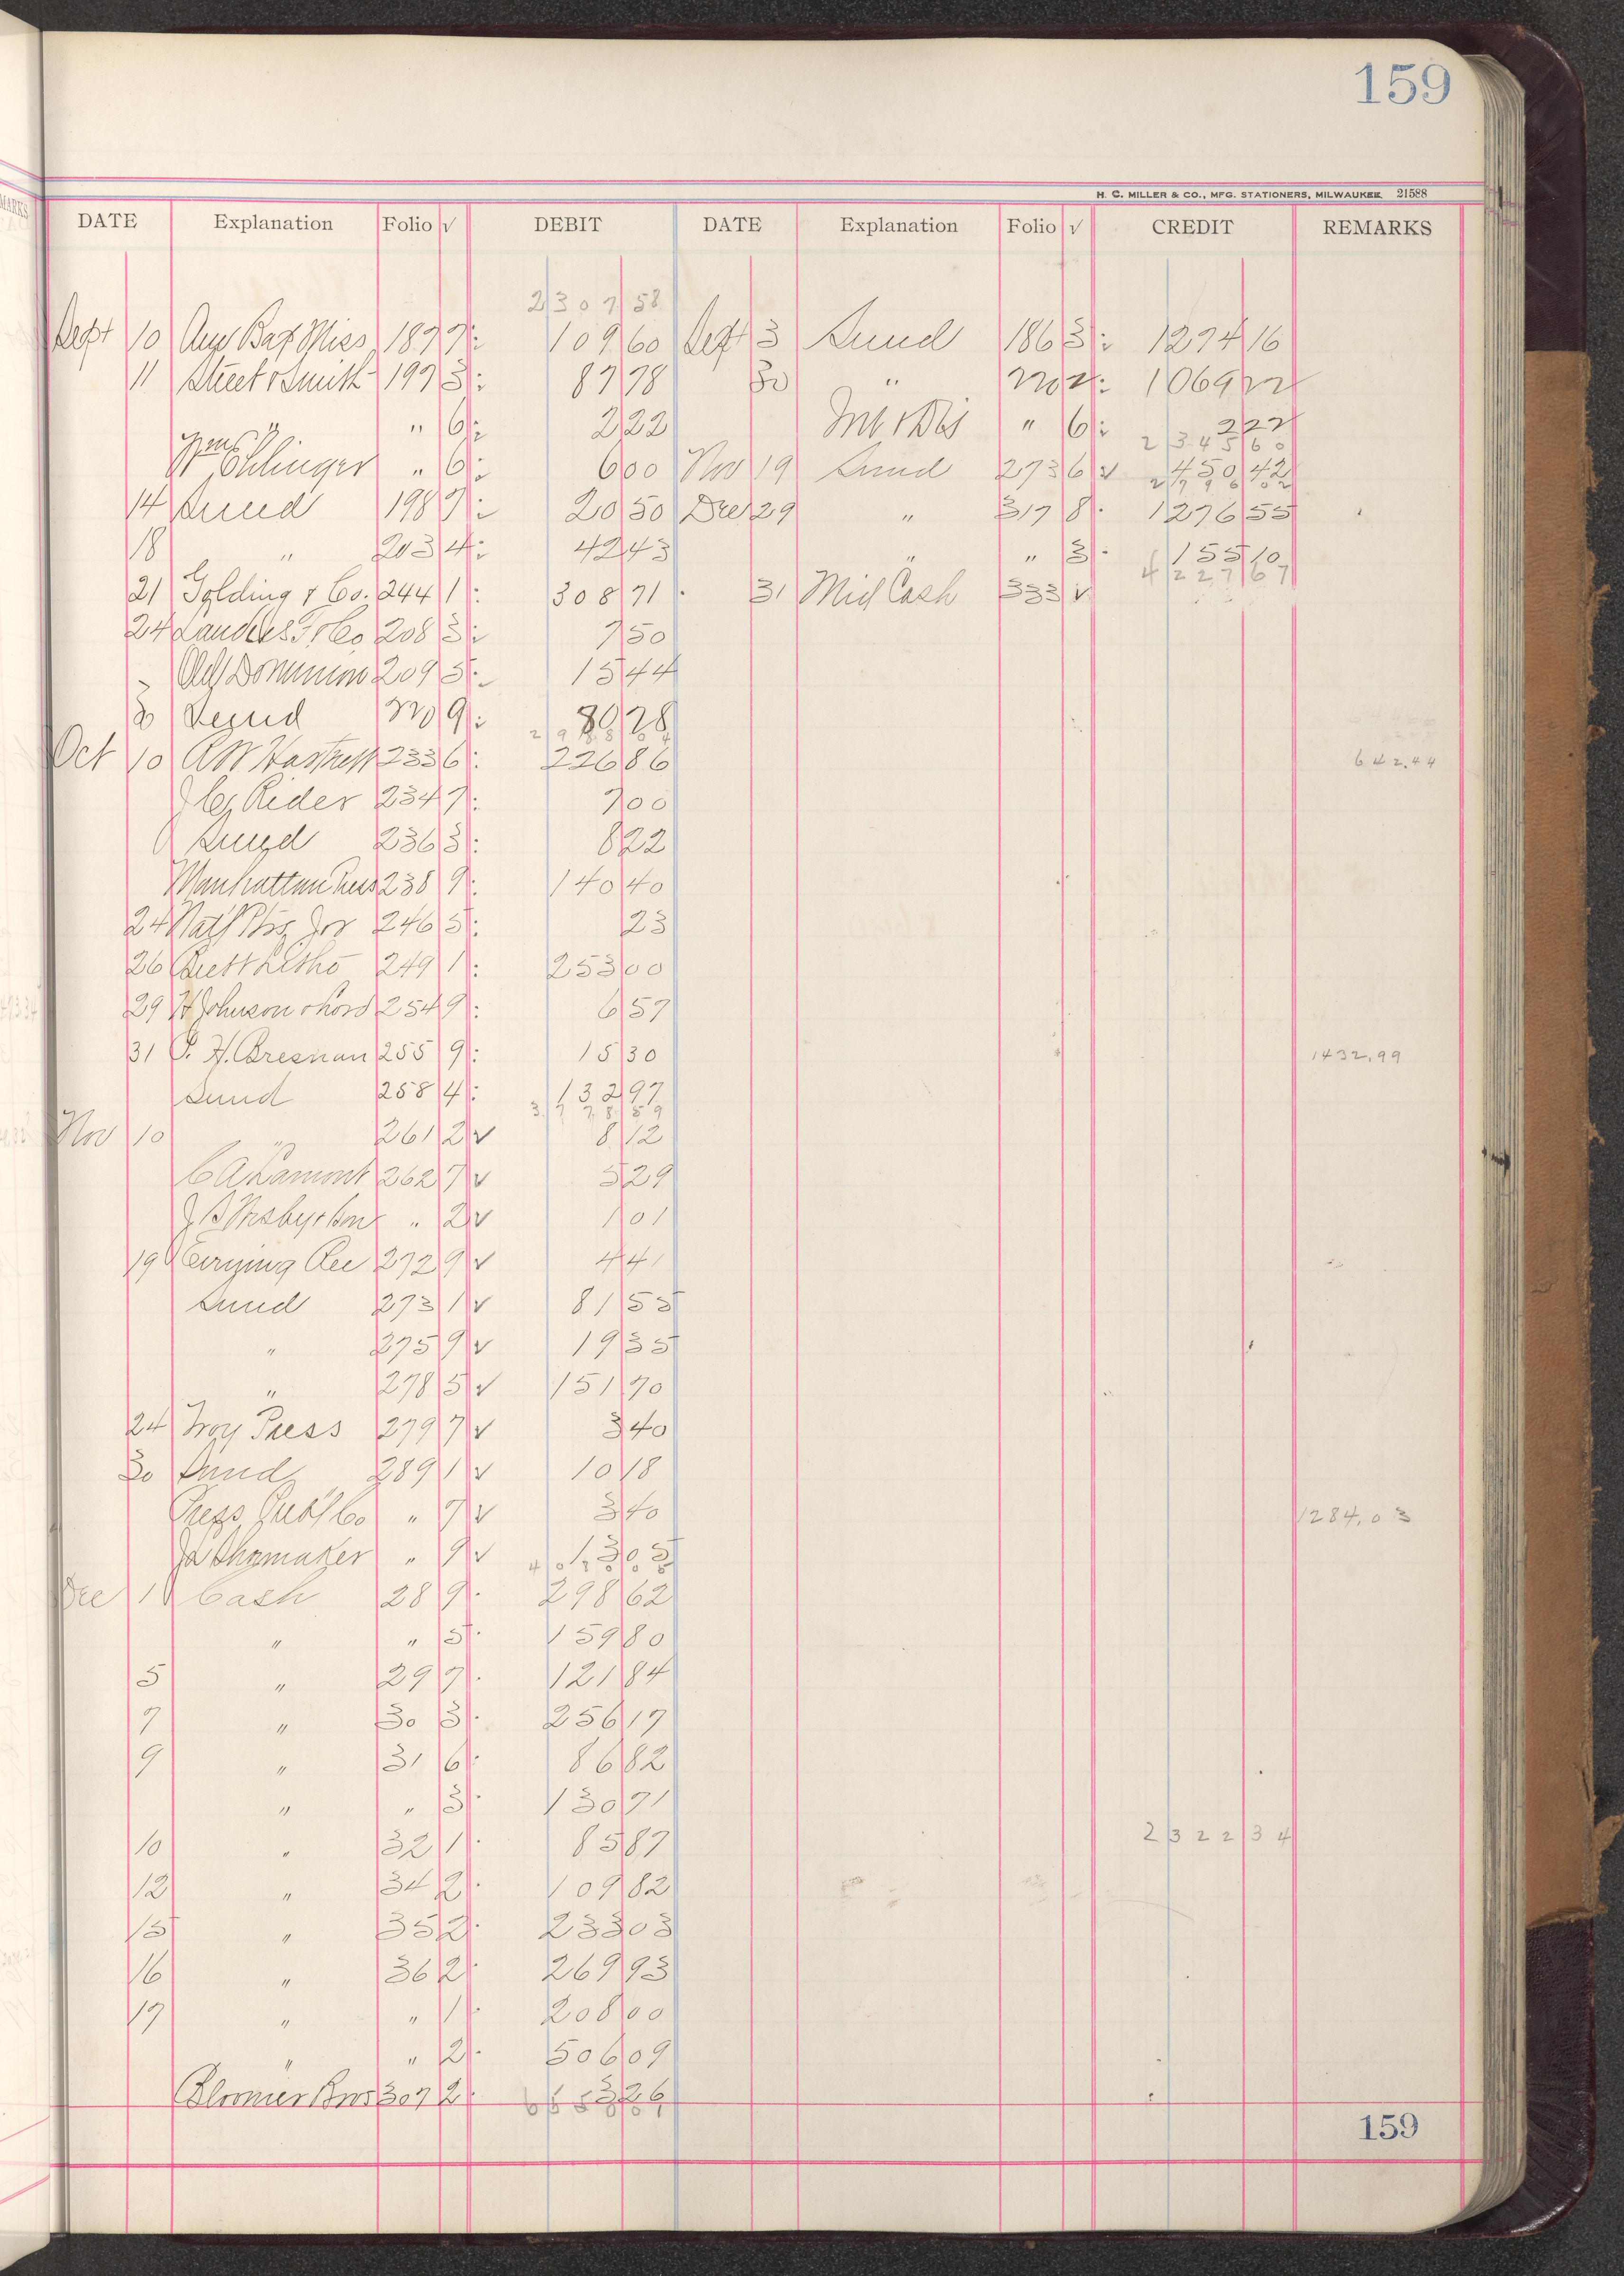 159
H. C. MILLER & CO., MFG. STATIONERS, MILWAUKEE. 21588
DATE Explanation Folio √ DEBIT DATE Explanation Folio √ CREDIT REMARKS
2307 58
Sept 10 Am Bap Miss 187 7 109 60 Sept 3 Sund 186 3 1274 16
11 Street & Smith 197 3 87 78 30 " 220 2 1069 22
" " 6 2 22 Int & Dis " 6 2 22
2345 60
Wm Ehlinger " 6 6 00 Nov 19 Sund 273 6 √ 450 42
2796 02
14 Sund 198 7 20 50 Dec 29 " 317 8 1276 55
18 " 203 4 42 43 " " 3 155 10
4227 67
21 Golding & Co. 244 1 308 71 31 Mid Cash 333 √
24 Landers & Co 208 3 7 50
Old Dominion 209 5 15 44
30 Sund 220 9 80 28
2988 04
Oct 10 233 6 226 86 642.44
Rider 234 7 7 00
Sund 236 3 8 22
Manhattan Press 238 9 140 40
24 Nat'l Ptg Jor 246 5 23
26 Brett Litho 249 1 253 00
29 Johnson & Lord 254 9 6 57
31 P. H. Bresnan 255 9 15 30 1432.99
Sund 258 4 132 97
3778 59
Nov 10 " 261 2 √ 8 12
C A Lamont 262 7 √ 5 29
" 2 √ 1 01
19 272 9 √ 4 41
Sund 273 1 √ 81 55
" 275 9 √ 19 35
" 278 5 √ 151 70
24 Troy Press 279 7 √ 3 40
30 Sund 289 1 √ 10 18
Press Publ Co " 7 √ 3 40 1284.03
Shomaker " 9 √ 13 05
Dec 1 Cash 28 9 298 62
" " 5 159 80
5 " 29 7 121 84
7 " 30 3 256 17
9 " 31 6 86 82
" " 3 130 71
10 " 32 1 85 87 2322 34
12 " 34 2 109 82
15 " 35 2 233 03
16 " 36 2 269 93
17 " " 1 208 00
" " 2 506 09
Bloomer Bros 307 2 3 26
159